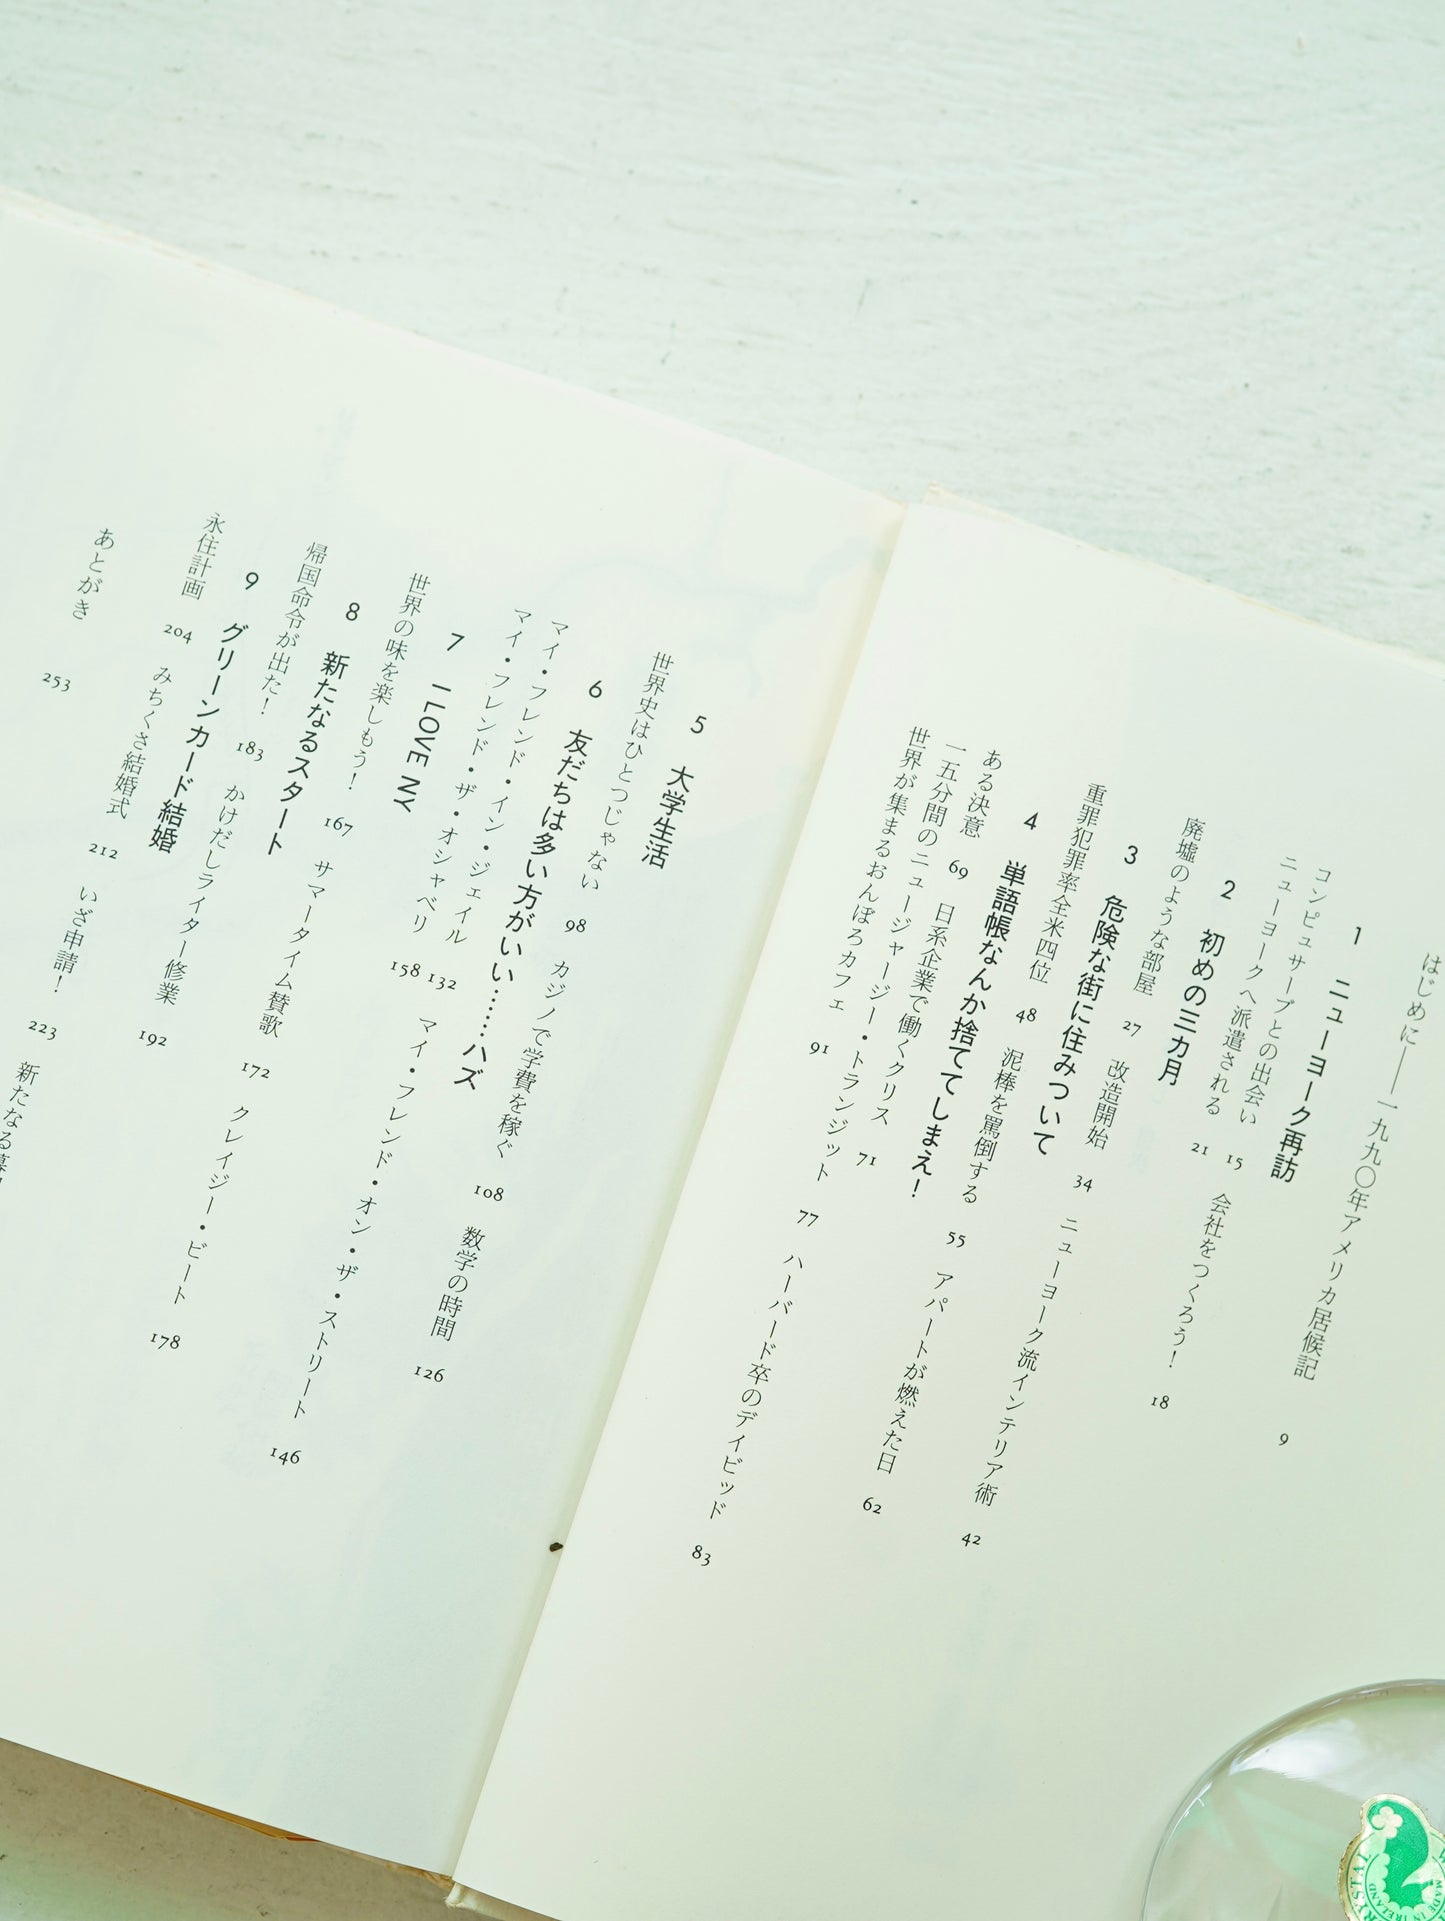 はじめに――一九九〇年アメリカ居候記 9
1 ニューヨーク再訪
コンピュサーブとの出会い 15
ニューヨークへ派遣される 21 会社をつくろう! 18
2 初めの三カ月
廃墟のような部屋 27 改造開始 34 ニューヨーク流インテリア術 42
3 危険な街に住みついて
重罪犯罪率全米四位 48 泥棒を罵倒する 55 アパートが燃えた日 62
4 単語帳なんか捨ててしまえ!
ある決意 69 日系企業で働くクリス 71
一五分間のニュージャージー・トランジット 77 ハーバード卒のデイビッド 83
世界が集まるおんぼろカフェ 91
5 大学生活
世界史はひとつじゃない 98 カジノで学費を稼ぐ 108 数学の時間 126
6 友だちは多い方がいい……ハズ
マイ・フレンド・イン・ジェイル 132
マイ・フレンド・ザ・オシャベリ 158 マイ・フレンド・オン・ザ・ストリート 146
7 I LOVE NY
世界の味を楽しもう! 167 サマータイム賛歌 172 クレイジー・ビート 178
8 新たなるスタート
帰国命令が出た! 183 かけだしライター修業 192
9 グリーンカード結婚
永住計画 204 みちくさ結婚式 212 いざ申請! 223 新たなる
あとがき 253
CRYSTAL
MADE IN IRELAND